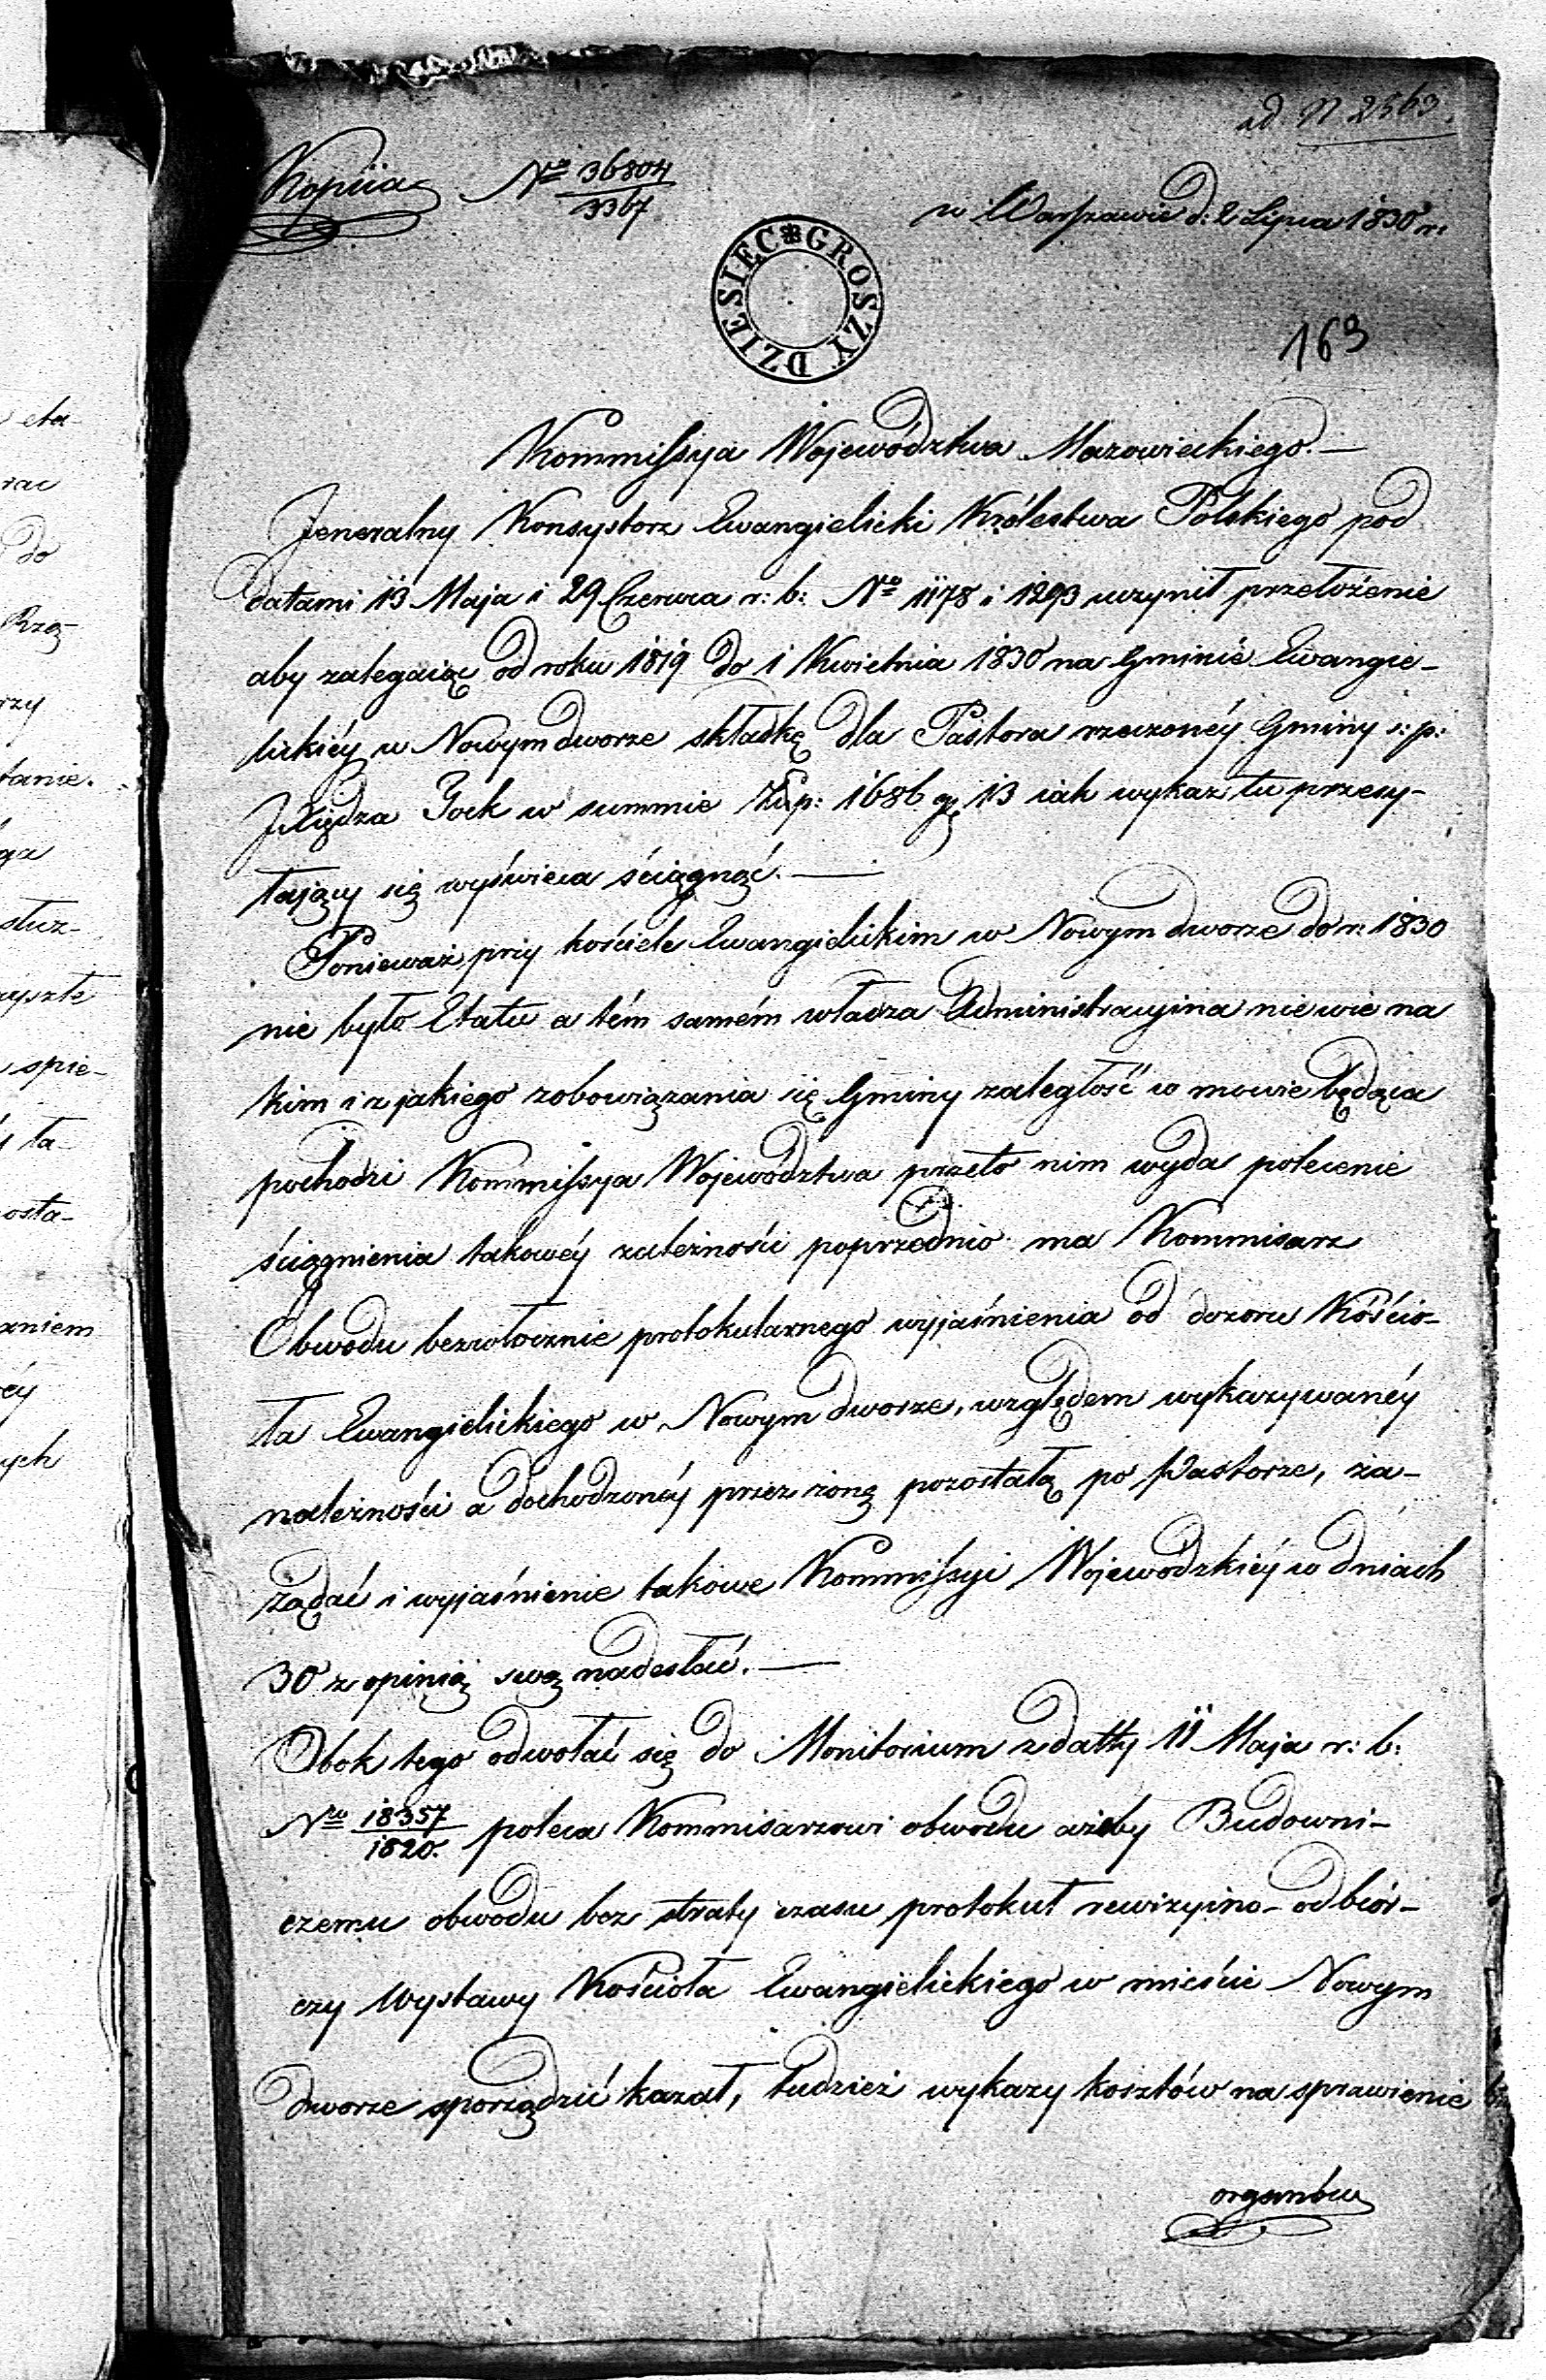 ad N 2563.
Kopiia No 36804/3367
w Warszawie d: 2 Lipca 1830 r:
DZIESIĘC GROSZY
163
Kommissya Województwa Mazowieckiego.—
Jeneralny Konsystorz Ewangielicki Królestwa Polskiego pod
datami 13 Maja i 29 Czerwca r: b: No 1178 i 1293 uczynił przełożenie
aby zalegaiącą od roku 1819 do 1 Kwietnia 1830 na Gminie Ewangie-
lickiéy w Nowym dworze składkę dla Pastora rzeczonéy Gminy s: p:
Xiędza Jock w summie Złp: 1686 gr 13 iak wykaz tu przesy-
łający się wyświeca ściągnąć.—
Ponieważ przy kościele Ewangielickim w Nowym dworze do r: 1830
nie było Etatu a tém samém władza Administracyina nie wie na
kim i z jakiego zobowiązania się Gminy zaległość w mowie będąca
pochodzi Kommissya Województwa przeto nim wyda polecenie
ściągnienia takowéy należności poprzednio ma Kommisarz
Obwodu bezwłocznie protokularnego wyjaśnienia od dozoru Kościo-
ła Ewangielickiego w Nowym dworze, względem wykazywanéy
należności a dochodzonéy przez żonę pozostałą po Pastorze, za-
żądać i wyjaśnienie takowe Kommissyi Wojewódzkiéy w dniach
30 z opinią swą nadesłać.—
Obok tego odwołać się do Monitorium z datty 11 Maja r: b:
No 18357/1820. poleca Kommisarzowi obwodu ażeby Budowni-
czemu obwodu bez straty czasu protokuł rewizyino-odbiór-
czy Wystawy Kościoła Ewangielickiego w mieście Nowym
dworze sporządzić kazał, tudzież wykazy kosztów na sprawienie
organów